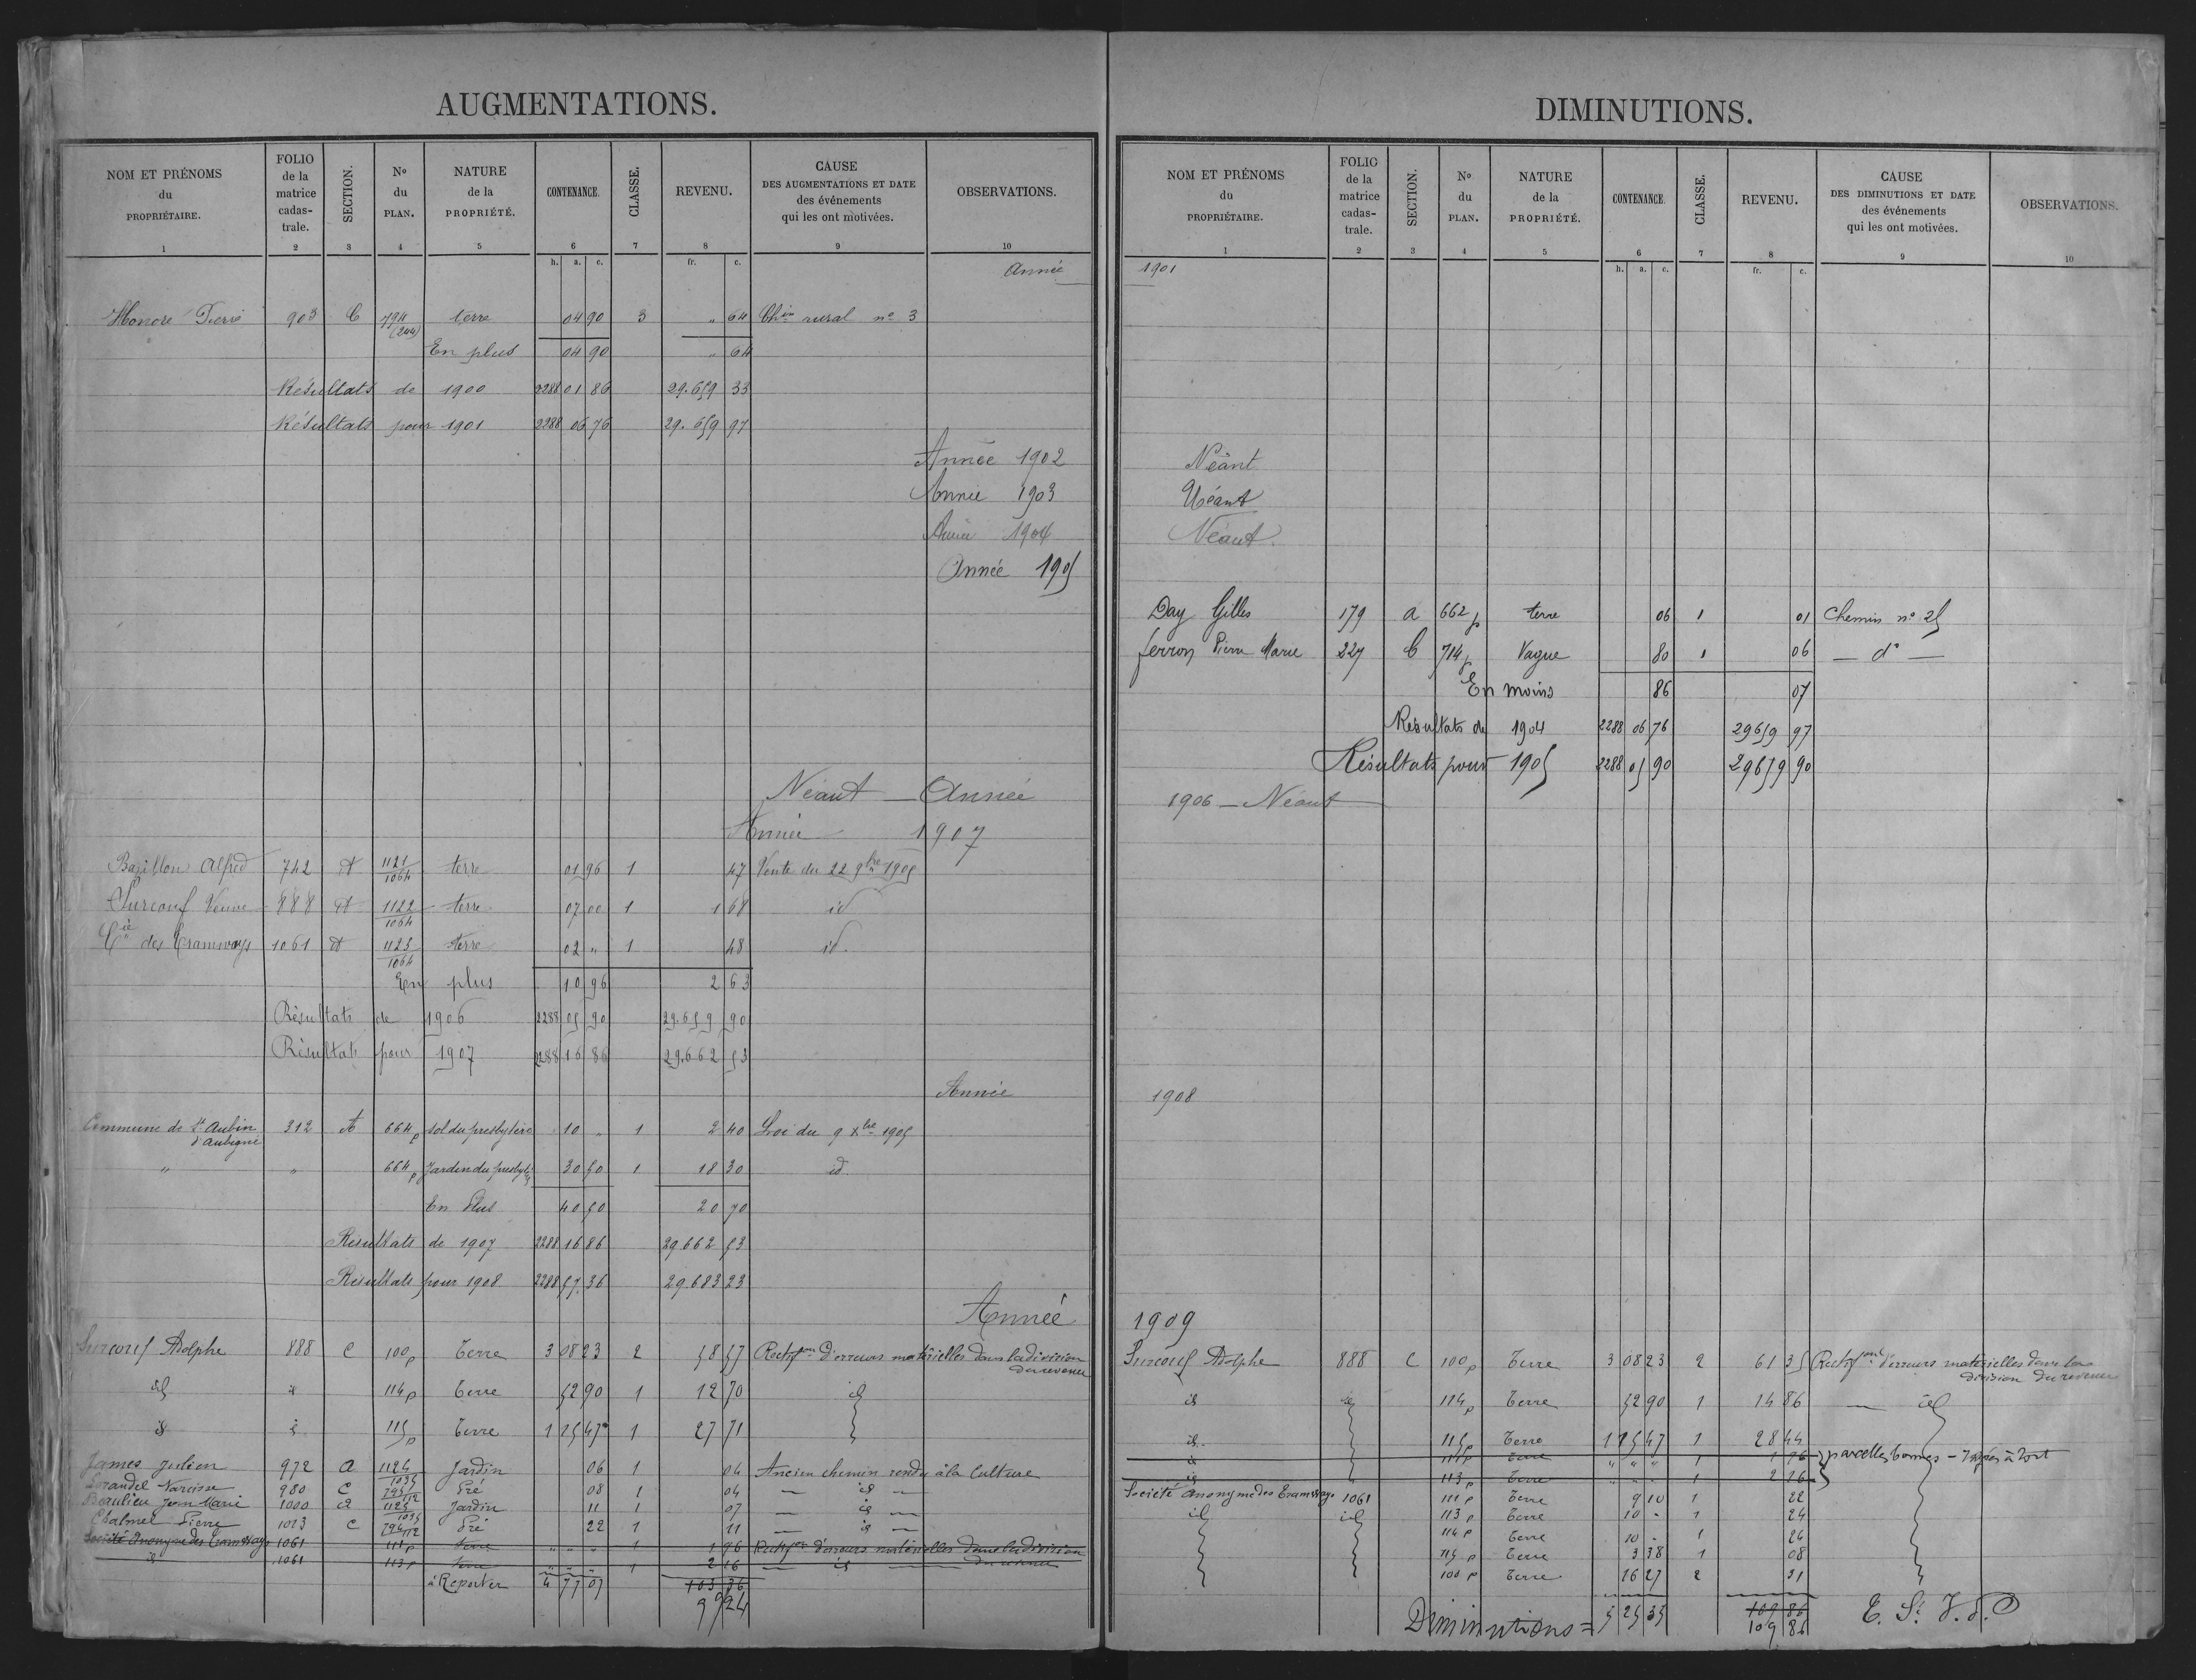 AUGMENTATIONS.
NOM ET PRÉNOMS du PROPRIÉTAIRE. | FOLIO de la matrice cadas-trale. | SECTION. | No du PLAN. | NATURE de la PROPRIÉTÉ. | CONTENANCE. | CLASSE. | REVENU. | CAUSE DES AUGMENTATIONS ET DATE des événements qui les ont motivées. | OBSERVATIONS.
1 2 3 4 5 6 7 8 9 10
h. a. c. fr. c.
Année
Honoré Pierre 903 C 794 (244) terre 04 90 3 " 64 Chin rural no 3
En plus 04 90 " 64
Résultats de 1900 2288 01 86 29.659 33
Résultats pour 1901 2288 06 76 29.659 97
Année 1902
Année 1903
Année 1904
Année 1905
Néant — Année
Année 1907
Bazillon Alfred 742 A 1121/1064 terre 01 96 1 47 Vente du 22 9bre 1905
Surcouf Veuve 888 A 1122/1064 terre 07 00 1 1 68 id
Cie des Tramways 1061 A 1123/1064 terre 02 " 1 48 id.
En plus 10 96 2 63
Résultats de 1906 2288 05 90 29.659 90
Résultats pour 1907 2288 16 86 29.662 53
Année
Commune de St Aubin d'Aubigné 312 A 664p sol du presbytère 10 " 1 2 40 Loi du 9 xbre 1905
" " 664p Jardin du presbytère 30 50 1 18 30 id.
En Plus 40 50 20 70
Resultats de 1907 2288 16 86 29.662 53
Résultats pour 1908 2288 57 36 29.683 23
Année
Surcouf Adolphe 888 C 100p Terre 3 08 23 2 58 57 Rectifon d'erreurs matérielles dans la division du revenu
id id 114p Terre 52 90 1 12 70 id
id id 115p Terre 1 15 47 1 27 71
James Julien 972 A 1124/1035 Jardin 06 1 04 Ancien chemin rendu à la culture
Lorandel Narcisse 980 C 795/112 Pré 08 1 04 — id —
Beaulieu Jean Marie 1000 A 1125/1035 Jardin 11 1 07 — id —
Chalmel Pierre 1013 C 796/112 Pré 22 1 11 — id —
Société Anonyme des Tramways 1061 111p Terre " " " 1 1 96 Rectifon d'erreurs matérielles dans la division du revenu
id 1061 113p Terre " " " 1 2 16 — id —
à Reporter 4 77 07 103 36
99 24
DIMINUTIONS.
NOM ET PRÉNOMS du PROPRIÉTAIRE. | FOLIO de la matrice cadas-trale. | SECTION. | No du PLAN. | NATURE de la PROPRIÉTÉ. | CONTENANCE. | CLASSE. | REVENU. | CAUSE DES DIMINUTIONS ET DATE des événements qui les ont motivées. | OBSERVATIONS.
1 2 3 4 5 6 7 8 9 10
h. a. c. fr. c.
1901
Néant
Néant
Néant
Day Gilles 179 a 662p terre 06 1 01 Chemin no 25
Ferron Pierre Marie 227 C 714p Vague 80 1 06 — do —
En moins 86 07
Résultats de 1904 2288 06 76 29659 97
Résultats pour 1905 2288 05 90 29659 90
1906 — Néant
1908
1909
Surcouf Adolphe 888 C 100p Terre 3 08 23 2 61 35 Rectifont d'erreurs matérielles dans la division du revenu
id id 114p Terre 52 90 1 14 86 — id
id. 115p Terre 1 15 47 1 28 44
id 111p Terre " " " 1 1 76 parcelles bonnes —
id 113p Terre " " " 1 2 16
Société Anonyme des Tramways 1061 111p Terre 9 10 1 22
id id 113p Terre 10 - 1 24
114p Terre 10 - 1 24
115p Terre 3 38 1 08
100p Terre 16 27 2 31
Diminutions = 5 25 35 109 86
109 86